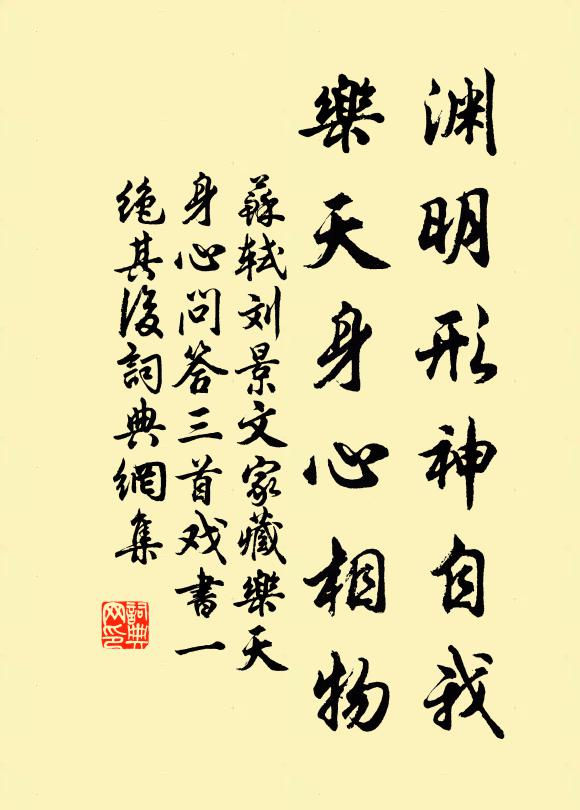 渊明形神自我
樂天身心相物
蘇軾刘景文家藏樂天
身心问答三首戏書一
绝其後詞典網集
詞典
网印